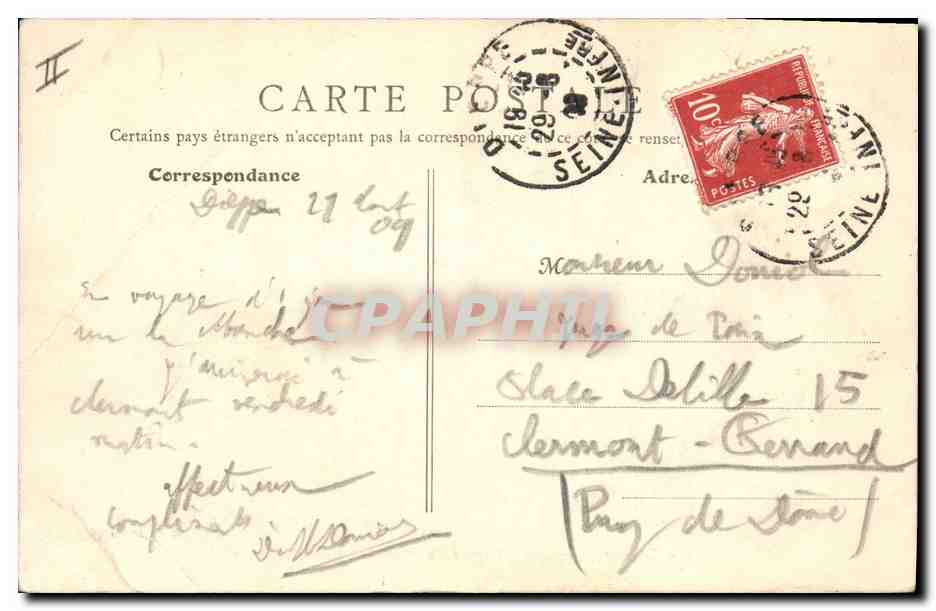 II
CARTE POSTALE
Certains pays étrangers n'acceptent pas la correspondance de ce côté se renset
Correspondance
Adre
Dieppe 29 Aout
09
En voyage d'1 jour
sur la Manche
j'arriverai à
clermont vendredi
matin.
affectueux
compliments
Monsieur Doniol
Juge de Paix
Place Delille 15
Clermont-Ferrand
(Puy de Dôme)
10c
REPUBLIQUE FRANÇAISE
POSTES
SEINE INFRE
29
SEINE INF
29
CPAPHIL